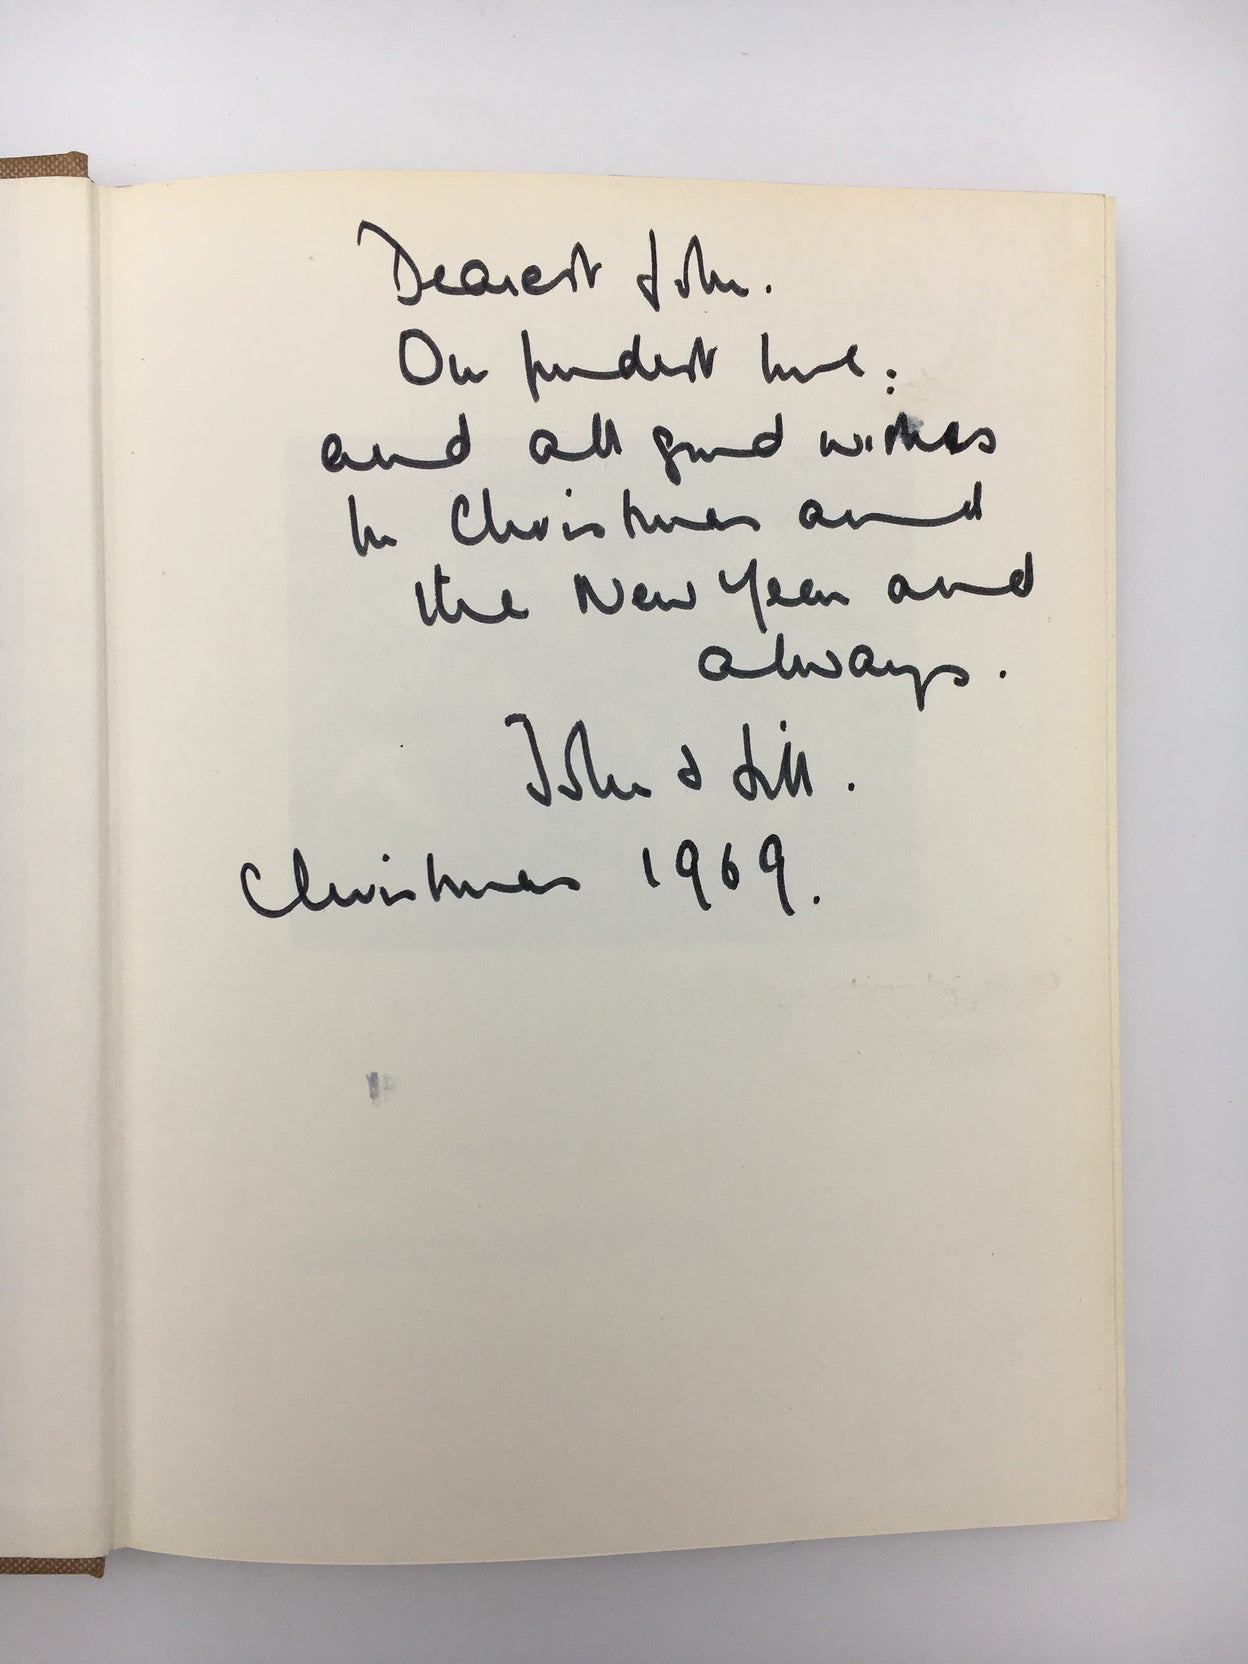 Dearest John.
Our fondest love:
and all good wishes
for Christmas and
the New Year and
always.
John & Jill.
Christmas 1969.